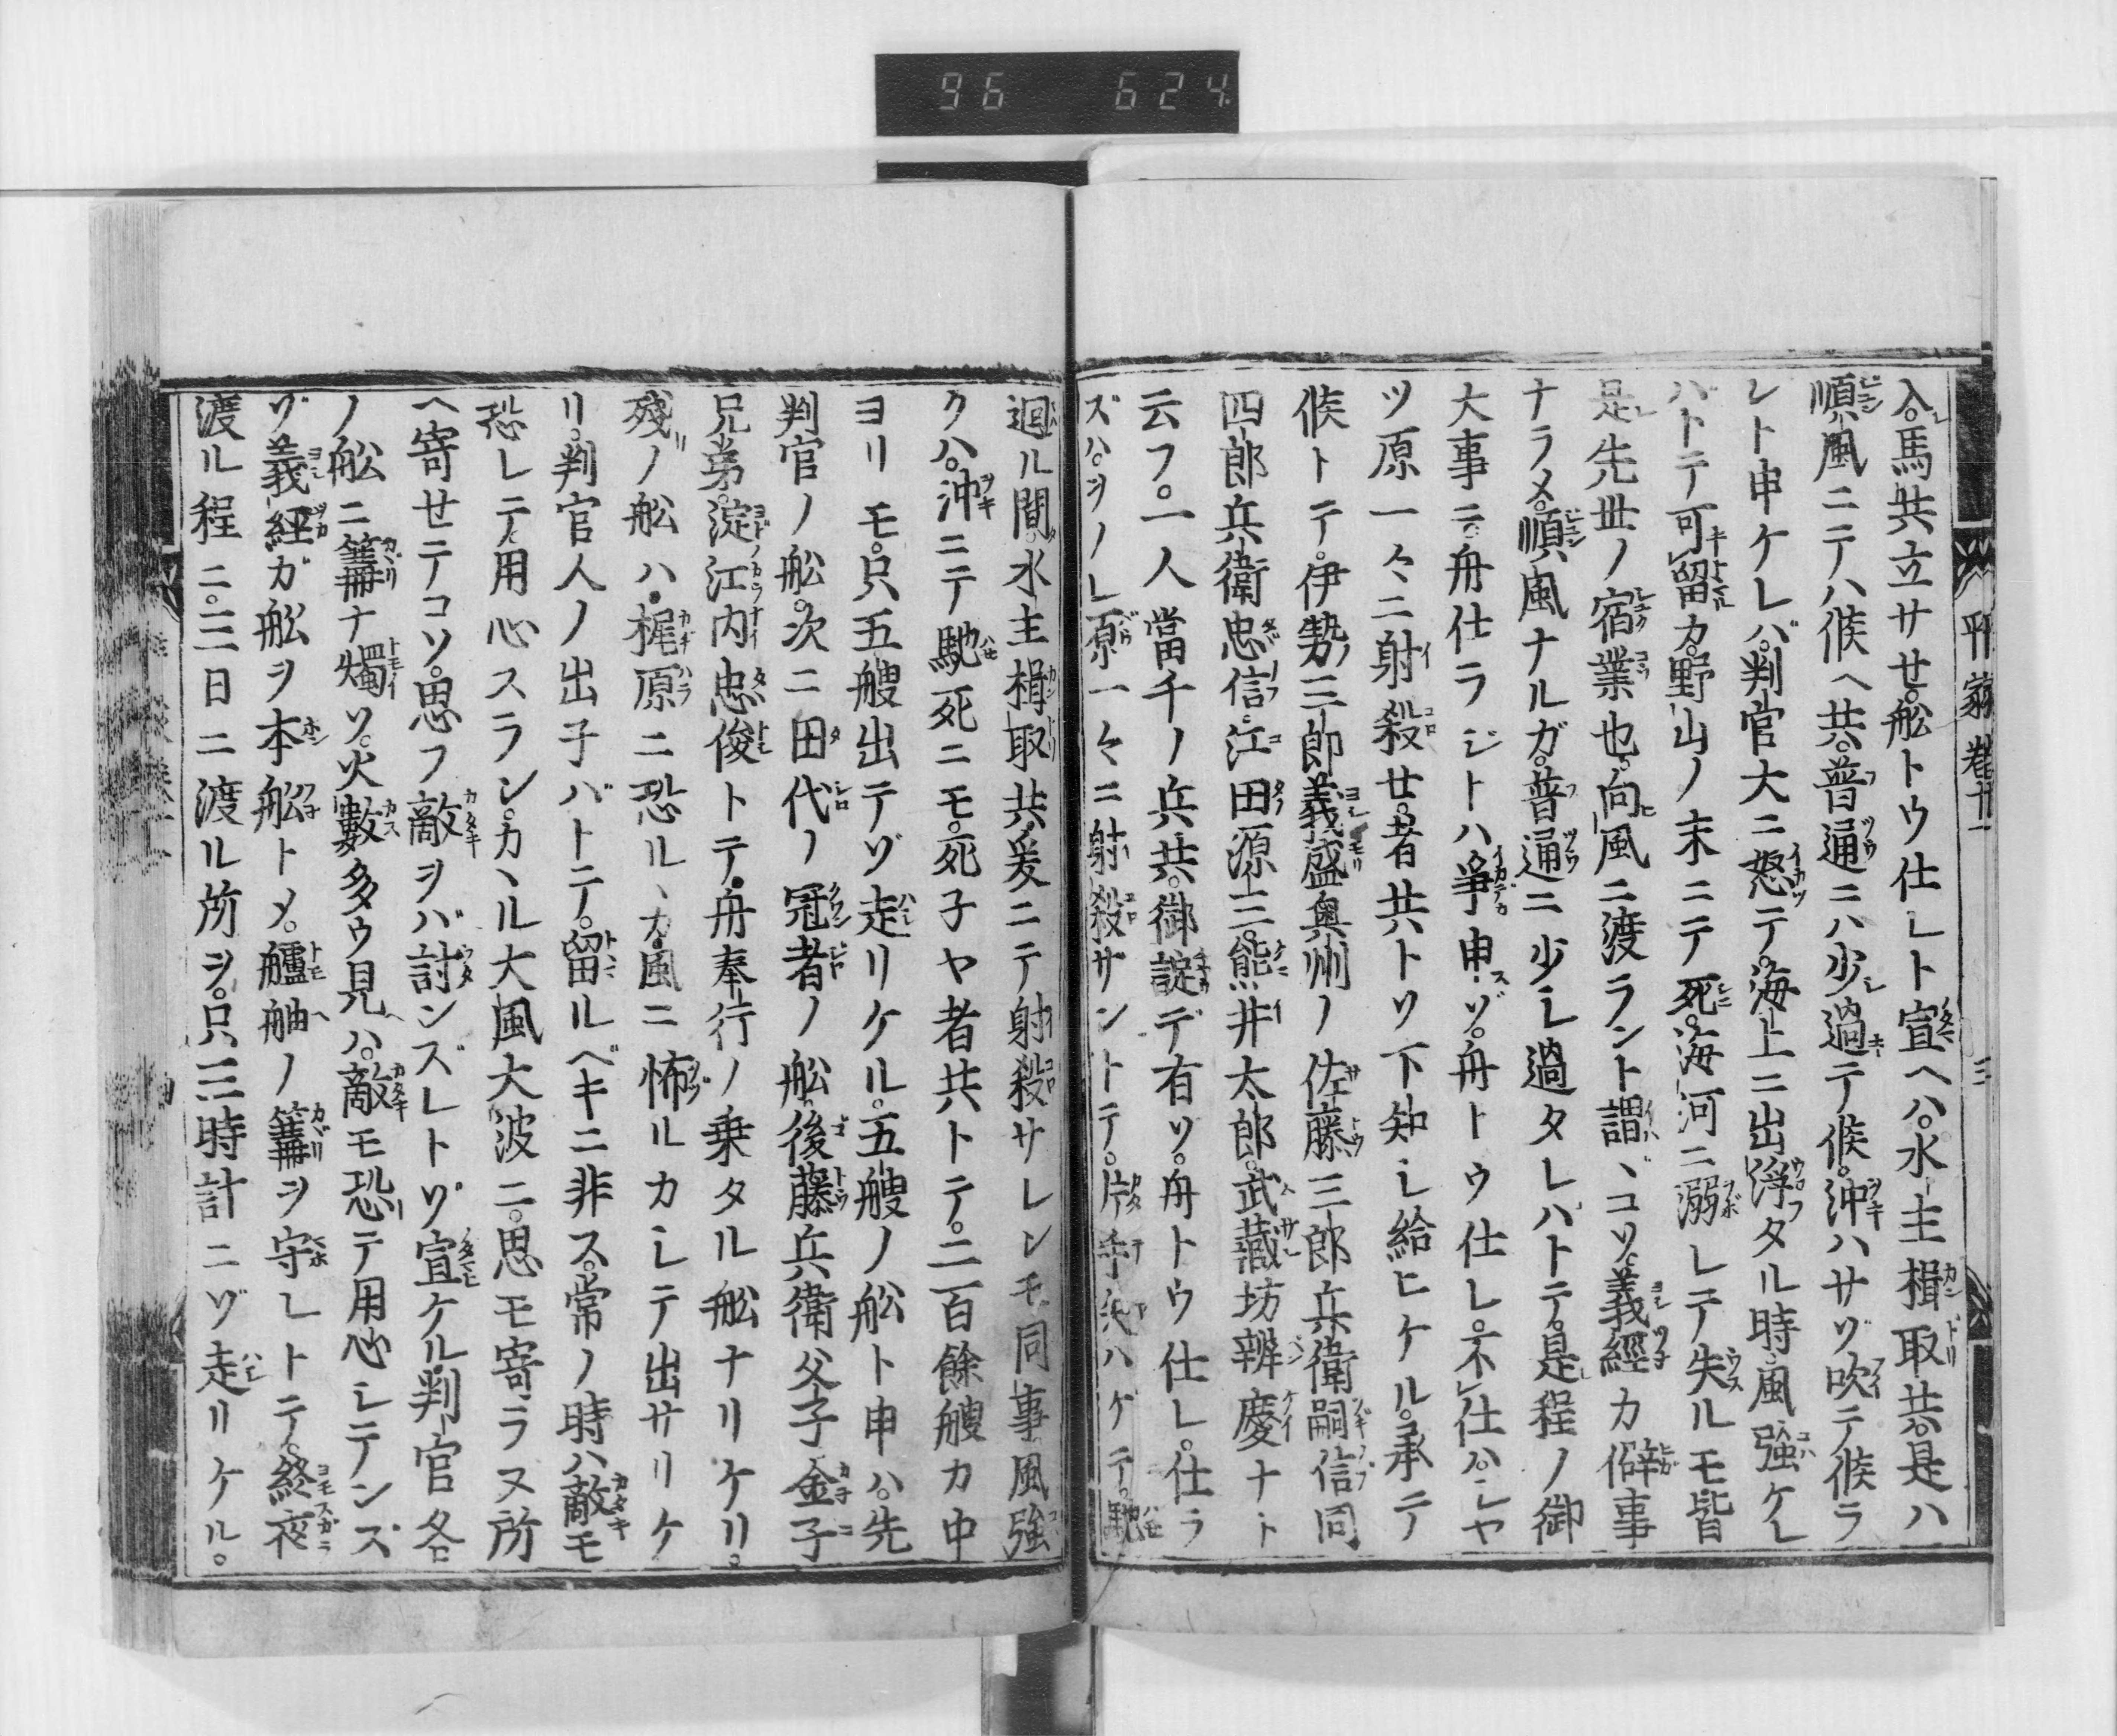 96 624
平家巻十一 三
入。馬共立サセ。舩トウ仕レト宣ヘハ。水主楫取共。是ハ
順風ニテハ候ヘ共。普通ニハ少過テ候。沖ハサゾ吹テ候ラ
レト申ケレバ。判官大ニ怒テ。海上ニ出浮タル時風強ケレ
バトテ可留カ。野山ノ末ニテ死。海河ニ溺レテ失ルモ皆
是先世ノ宿業也。向風ニ渡ラント謂バコソ。義經カ僻事
ナラメ。順風ナルガ。普通ニ少シ過タレバトテ。是程ノ御
大事ニ。舟仕ラジトハ爭申ゾ。舟トウ仕レ。不仕ハ。シヤ
ツ原一々ニ射殺せ。者共トソ下知シ給ヒケル。承テ
候トテ。伊勢三郎義盛奥州ノ佐藤三郎兵衛嗣信同
四郎兵衛忠信。江田源三。熊井太郎。武藏坊辨慶ナト
云フ。一人當千ノ兵共。御諚デ有ゾ。舟トウ仕レ。仕ラ
ズハ。ヲノレ原一々ニ射殺サントテ。片手矢ハゲテ。馳
迴ル間。水主楫取共爰ニテ射殺サレンモ同事。風強
クハ。沖ニテ馳死ニモ。死子ヤ者共トテ。二百餘艘カ中
ヨリモ。只五艘出テゾ走リケル。五艘ノ舩ト申ハ。先
判官ノ舩。次ニ田代ノ冠者ノ舩。後藤兵衛父子金子
兄弟。淀江内忠俊トテ。舟奉行ノ乗タル舩ナリケリ。
殘ノ舩ハ。梶原ニ恐ルヽカ。風ニ怖ルカシテ出サリケ
リ。判官人ノ出子バトテ。留ルベキニ非ス。常ノ時ハ敵モ
恐レテ用心スラン。カヽル大風大波ニ。思モ寄ラヌ所
ヘ寄せテコソ。思フ敵ヲバ討ンズレトゾ宣ケル。判官各
ノ舩ニ篝ナ燭ソ。火數多ウ見ヘハ。敵モ恐テ用心シテンズ
ゾ義經ガ舩ヲ本舩トメ。艫舳ノ篝ヲ守レトテ。終夜
渡ル程ニ。三日ニ渡ル所ヲ。只三時計ニゾ走リケル。